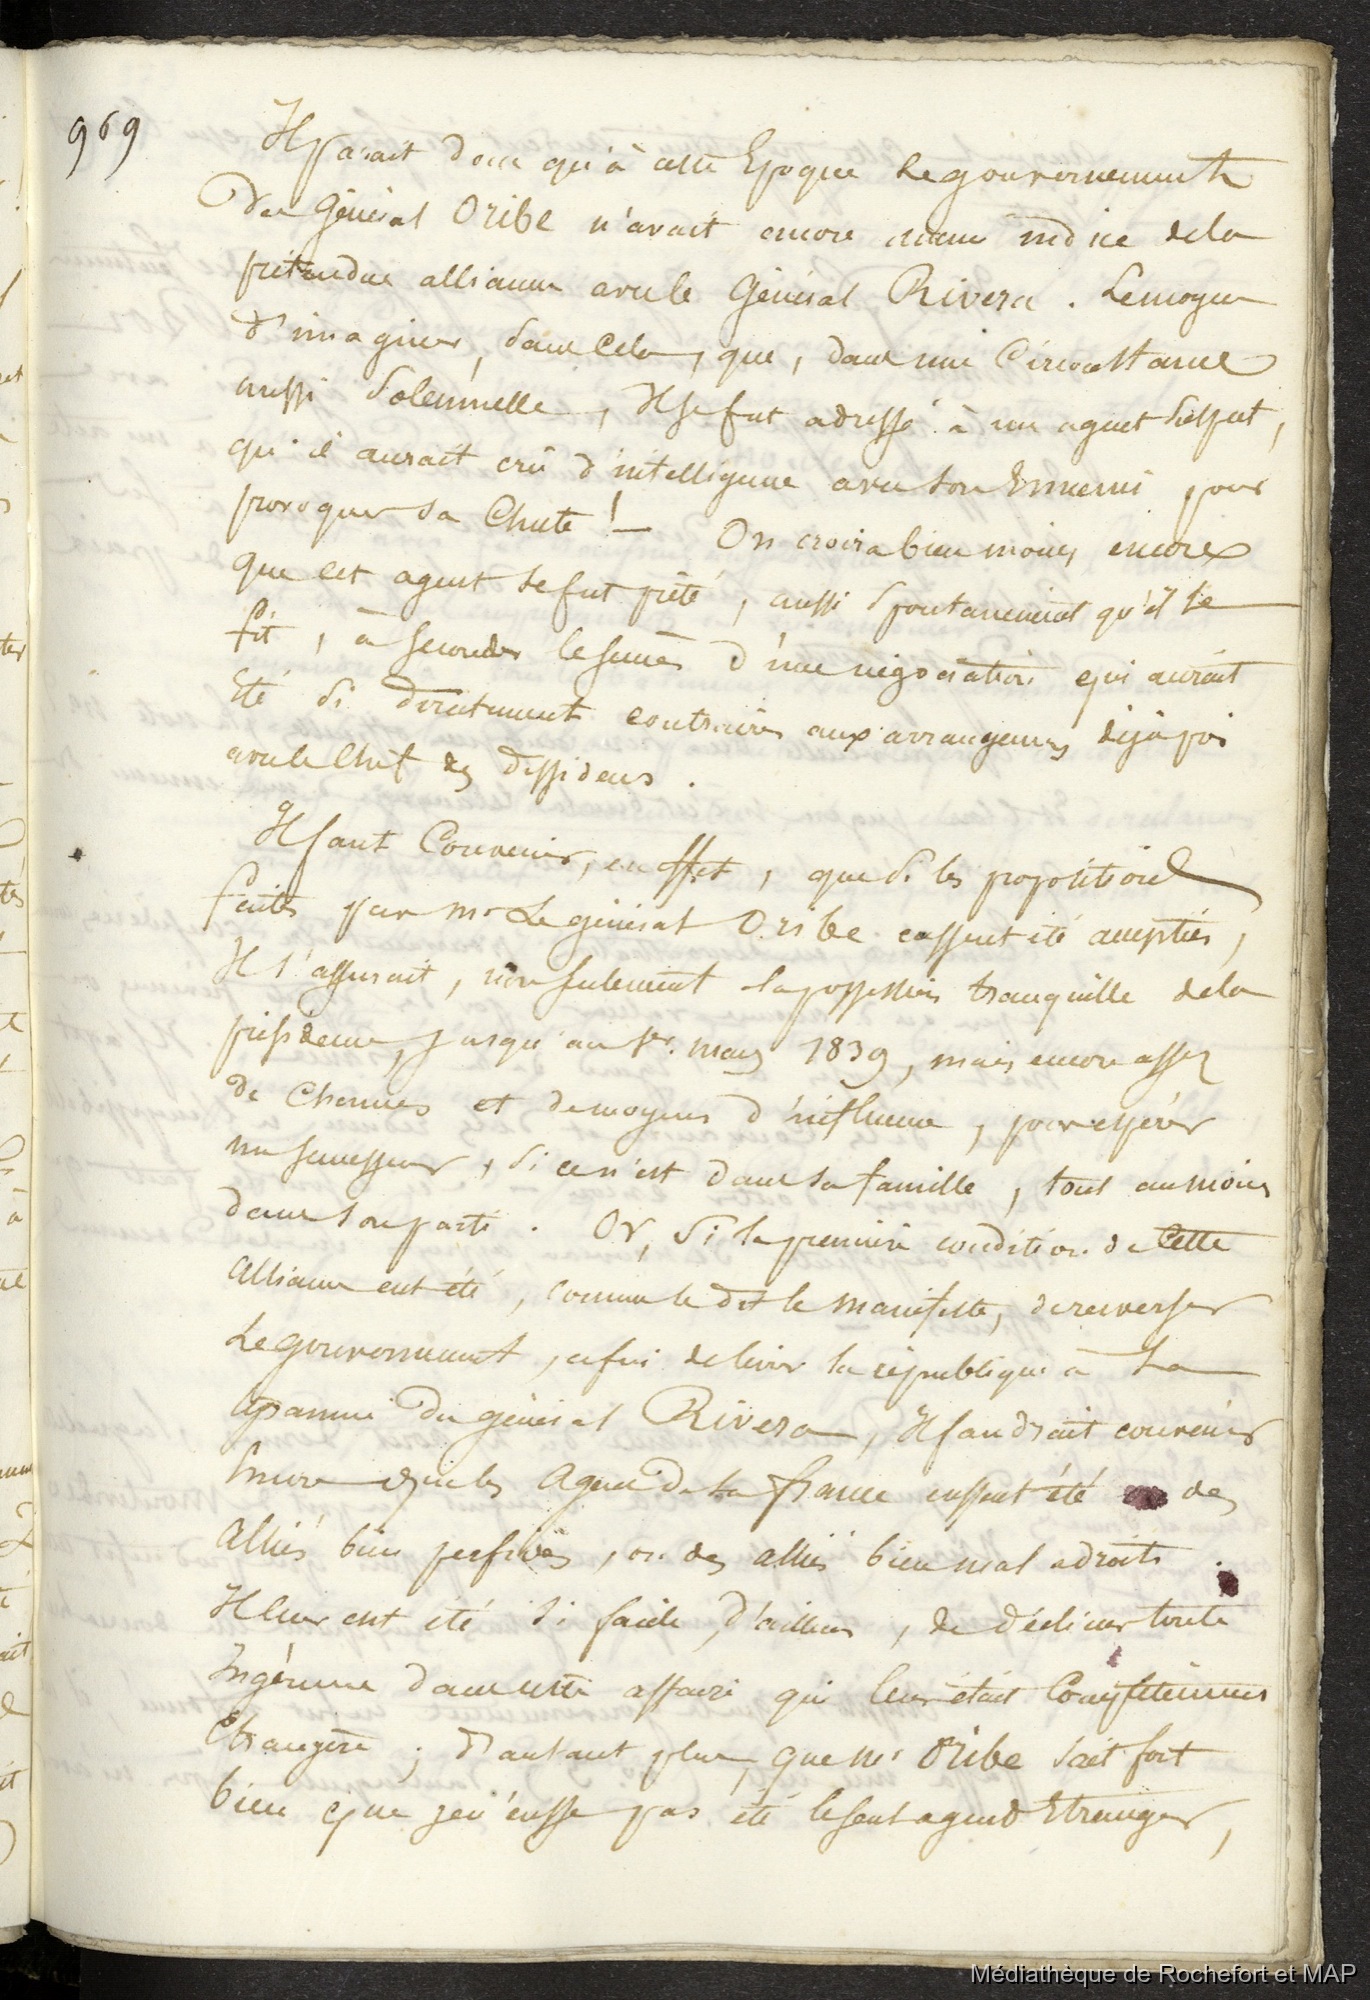 969
Il parait donc qu'à cette Epoque Le gouvernement
Du Général Oribe n'avait encore aucun indice de la
prétendue alliance avec le Général Rivera. Le moyen
d'imaginer, sans cela, que, dans une Circonstance
aussi Solennelle, Il se fut adressé à un agent suspect,
qu'il aurait crû d'intelligence avec son Ennemi pour
provoquer sa Chute! — On croira bien moins encore
que cet agent se fut prêté, aussi Spontanément qu'il le
fit, à seconder le succès d'une négociation qui aurait
Eté si directement contraire aux arrangemens déjà pris
avec le Chef des dissidens.
Il faut Convenir, en effet, que si les propositions
faites par Mr Le général Oribe eussent été acceptées,
Il s'assurait, non seulement la possession tranquille de la
présidence, jusqu'au 1er. mars 1839, mais encore assez
de Chances et de moyens d'influence, pour espérer
un successeur, si ce n'est dans sa famille, tout au moins
dans son parti. Or, si la première condition de Cette
Alliance eut été, comme le dit le manifeste, de renverser
Le gouvernement, afin de livrer la république à La
Tyrannie du général Rivera, Il faudrait convenir
Encore que les Agens de la France eussent été des
Alliés bien perfides, ou des alliés bien mal adroits.
Il leur eut été si facile, d'ailleurs, de décliner toute
Ingérence dans cette affaire qui leur était Complètement
Etrangère; d'autant plus, que Mr Oribe sait fort
bien que je n'eusse pas été le seul agent Etranger,
Médiathèque de Rochefort et MAP